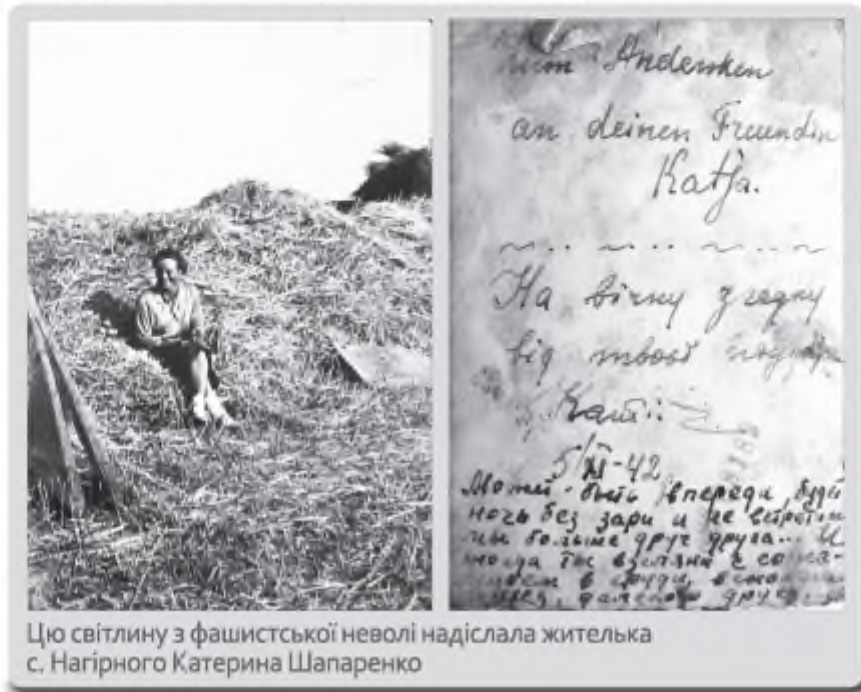 Andenken
an deinen Freundin
Katja.
На вічну згадку
від твоєї
Каті
5/XI-42
Может быть впереди будет
ночь без зари и не встретим
мы больше друг друга... И
тогда ты взгляни с
в груди,
друга
Цю світлину з фашистської неволі надіслала жителька
с. Нагірного Катерина Шапаренко